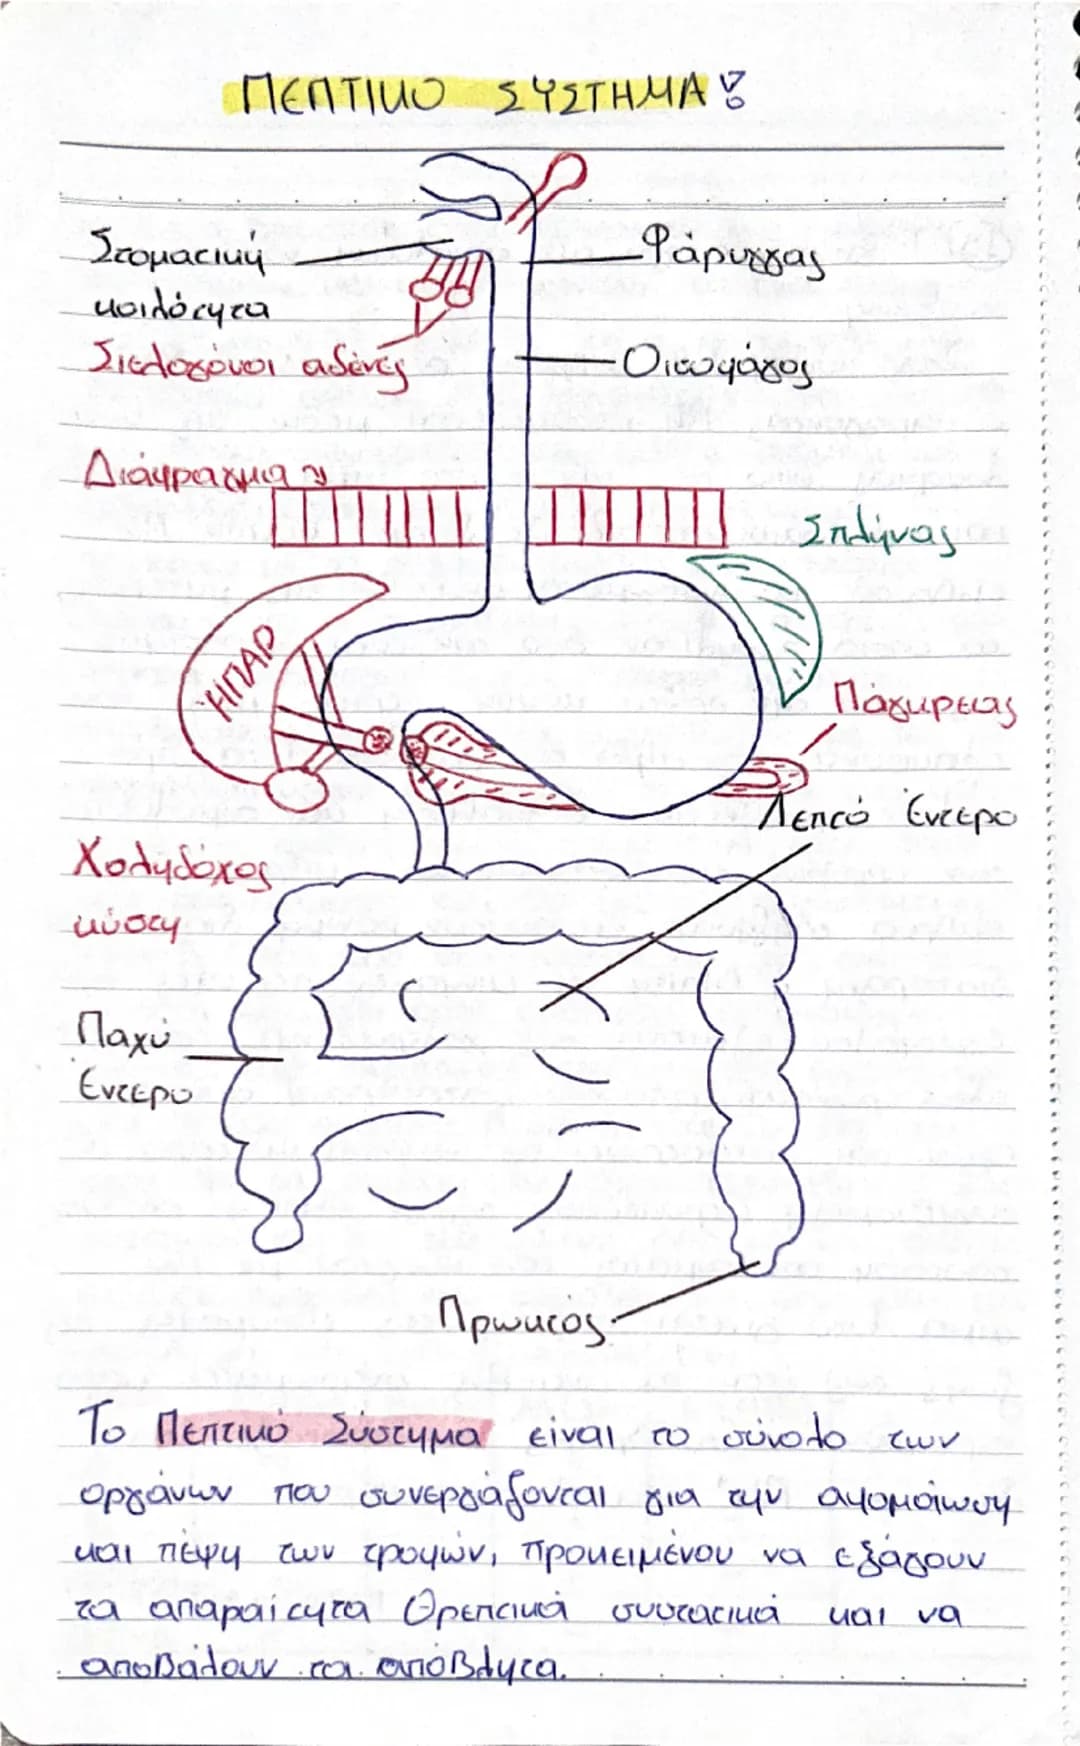 ΠΕΠΤΙΚΟ ΣΥΣΤΗΜΑ!
Στοματική
κοιλότητα
Φάρυγγας
Σιελογόνοι αδένες
Οισοφάγος
Διάφραγμα
Σπλήνας
ΗΠΑΡ
Πάγκρεας
Λεπτό Έντερο
Χοληδόχος
κύστη
Παχύ
Έντερο
Πρωκτός
Το Πεπτικό Σύστημα είναι το σύνολο των
οργάνων που συνεργάζονται για την αφομοίωση
και πέψη των τροφών, προκειμένου να εξάγουν
τα απαραίτητα θρεπτικά συστατικά και να
αποβάλουν τα απόβλητα.